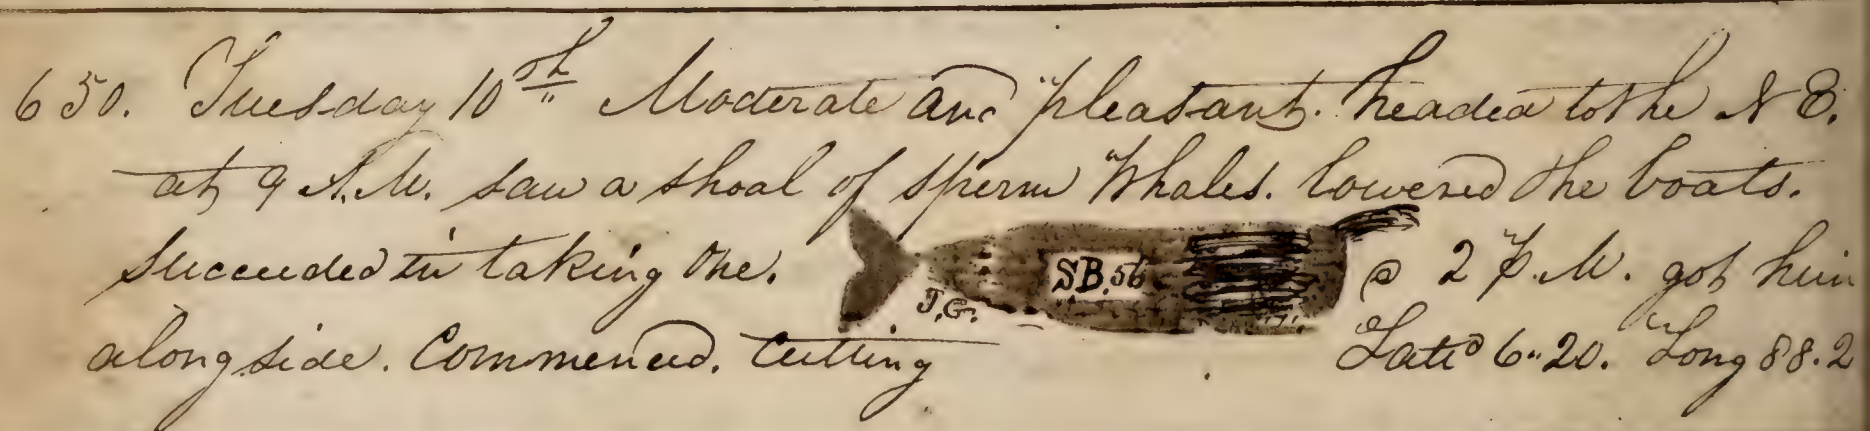 650. Tuesday 10th Moderate and pleasant. headed to the N E.
at 9 A.M. saw a shoal of sperm Whales. lowered the boats.
Succeeded in taking One. SB.56 @ 2 P.M. got him
J.G.
along side. Commenced. Cutting Latd 6"20. Long 88.2